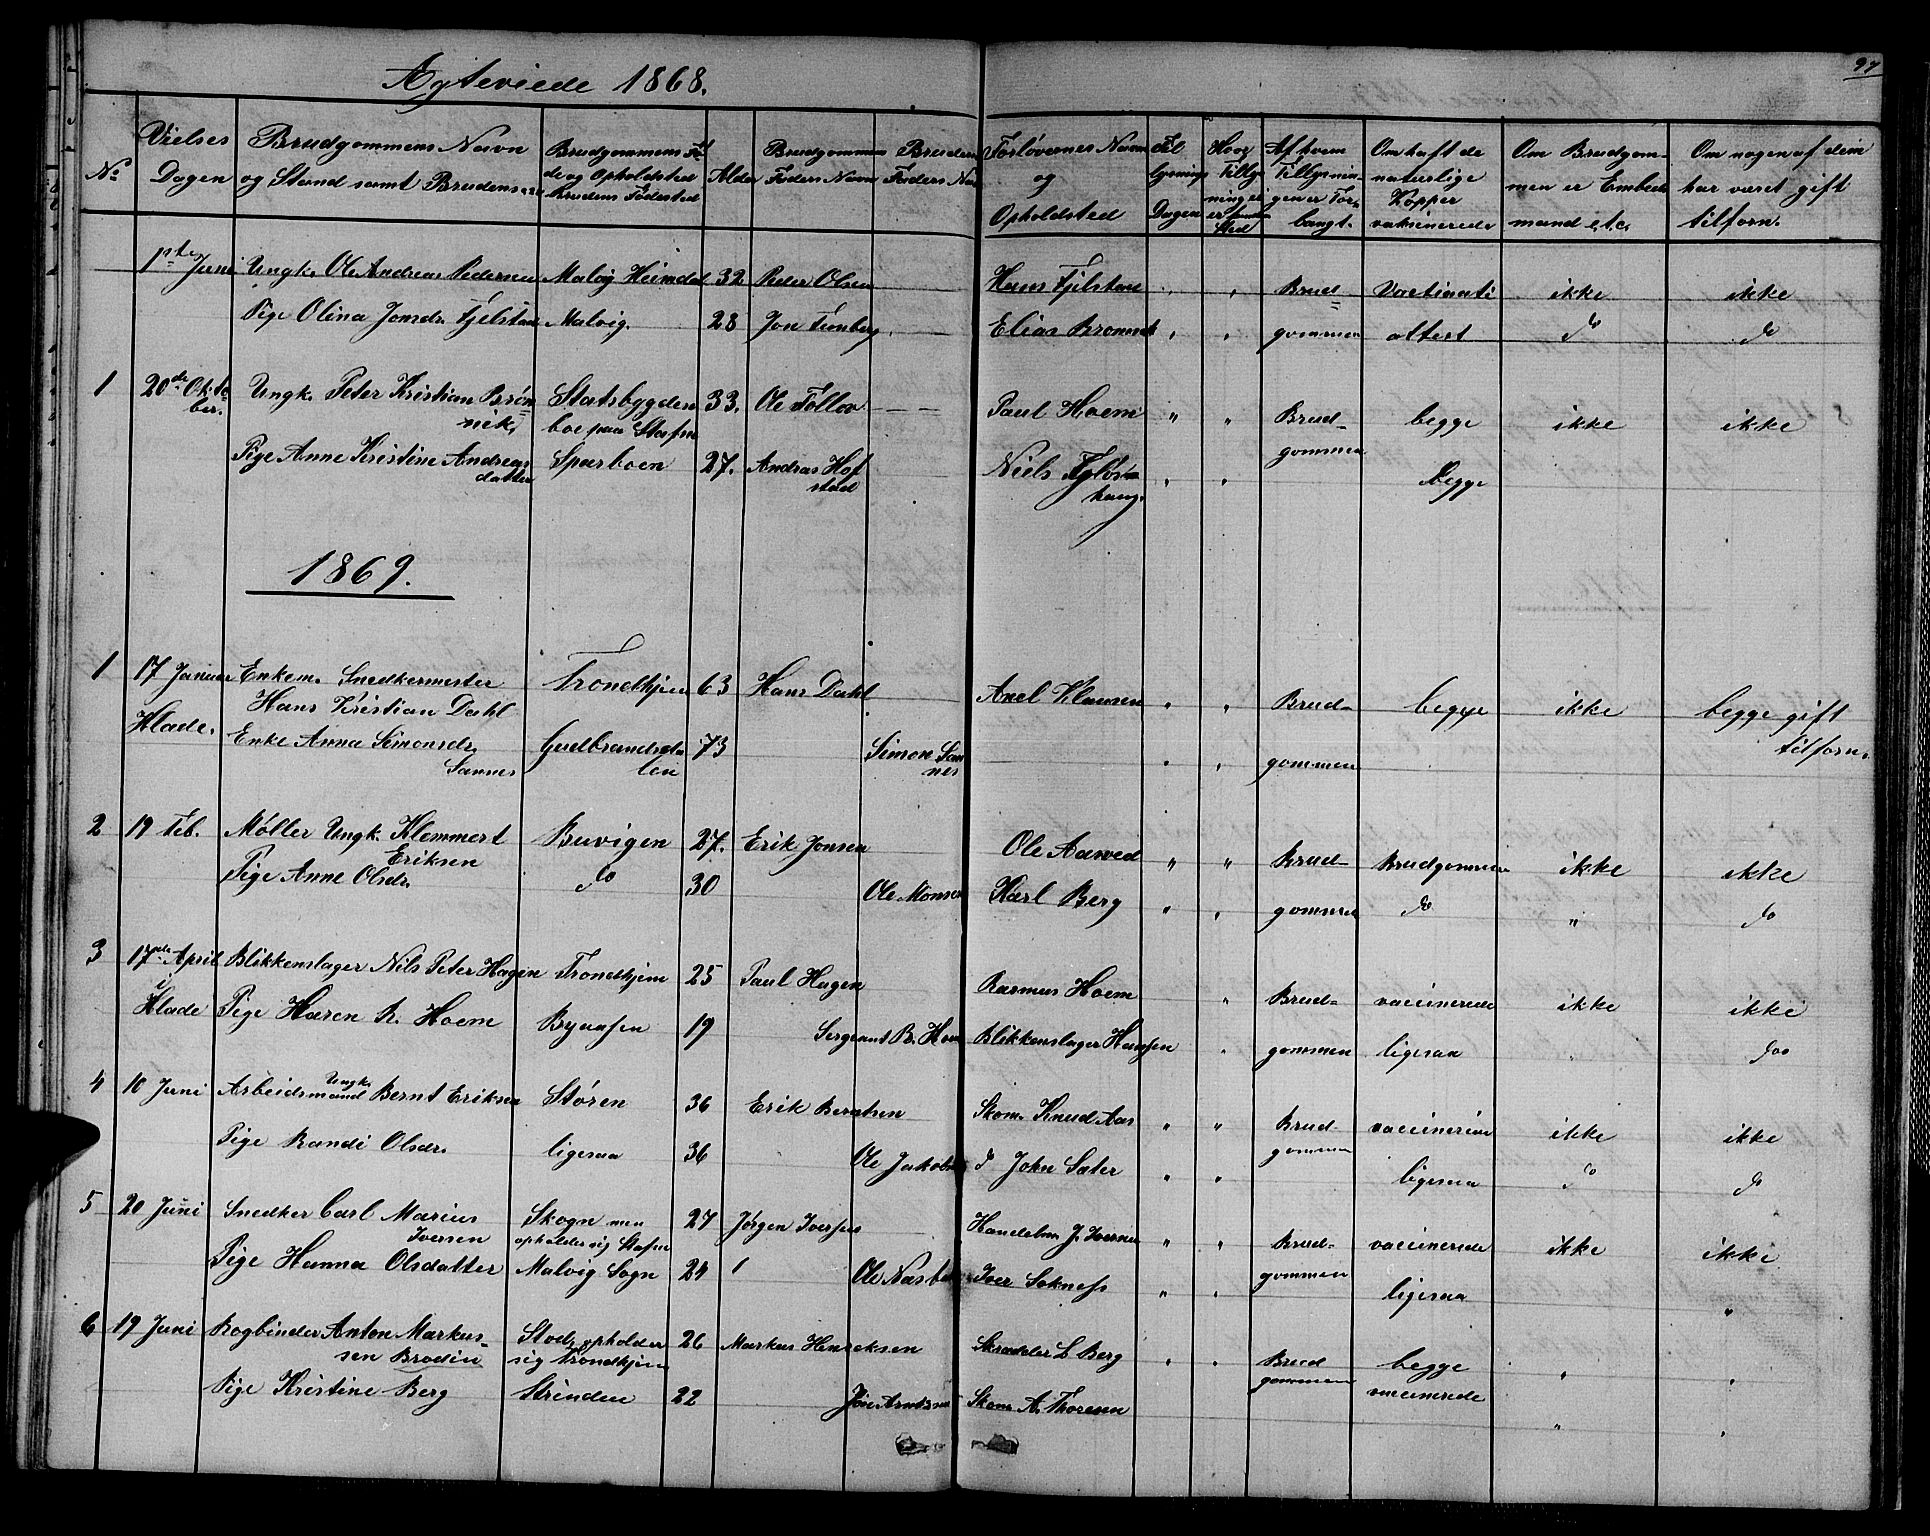 97
Ægteviede 1868.
No
Vielses Dagen
Brudgommens Navn og Stand samt Brudens
Brudgommens Fødested og Opholdsted Brudens Fødested
Alder
Brudgommens Faders Navn
Brudens Faders Navn
Forlovernes Navn og Opholdsted
Dagen
Af hvem Tillysningen er Forlangt.
Om haft de naturlige Kopper vaksinerede
Om Brudgommen er Embedsmand etc.
Om nogen af dem har været gift tilforn.
1ste Juni Ungk. Ole Andreas Pedersen Malvig Heimdal 32 Peder Olsen Hans Fjelstan " Brud= Vactinati ikke ikke
Pige Olina Jonsdr. Fjelstan Malvig. 28 Jon Elias " " gommen attest do do
1 20de Oktober. Ungk. Peter Kristian Brønnik, Statsbygden boe paa 33. Ole Follov Paul Hoem " " Brud- begge ikke ikke
Pige Anne Kristine Andreasdatter Sparboen 27. Andras Hofstad Niels " " gommen begge
1869.
1 17 Januar Enkem. Snedkermester Hans Kristian Dahl Trondhjem 63 Hans Dahl Axel Klausen " " Brud- begge ikke begge gift tilforn.
Hlade. Enke Anna Simonsdr. Sannes Gudbrandsdalen 73 Simon Sannes " " gommen
2 19 Feb. Møller Ungk. Klemmert Eriksen Buvigen 27. Erik Jonsen Ole Aarved " " Brud- Brudgommen ikke ikke
Pige Anne Olsdr. do 30 Ole Monsen Karl Berg " " gommen do " do
3 17de April Blikkenslager Nils Peter Hagen Trondhjem 25 Paul Hagen Rasmus Hoem " Brud- vaccinerede ikke ikke
i Hlade Pige Haren R. Hoem Bynæsen 19 Sergeant R. Hoem Blikkenslager Hansen " gommen ligesaa " do
4 10 Juni Arbeidsmand Ungk. Bernt Eriksen Støren 36 Erik Berntsen Skom. Knud Aas " " Brud- vaccinerede ikke ikke
Pige Randi Olsdr. ligesaa 36 Ole Jakobs do John Sæter " " gommen ligesaa do do
5 20 Juni Snedker Carl Marius Iversen Skogn men opholder sig 27 Jørgen Iversen Handelsm. J. Iversen " " Brud- vaccinerede ikke ikke
Pige Hanna Olsdatter Malvig Sogn 24 Ole Iver Saknes " " gommen ligesaa "
6 19 Juni Bogbinder Anton Markussen Brodin Stod, opholder sig Trondhjem 26 Markus Henriksen Skrædder L Berg " " Brud begge " "
Pige Kristine Berg Strinden 22 Jon Arntsen Skom. A. Thoresen gommen vaccinerede " "